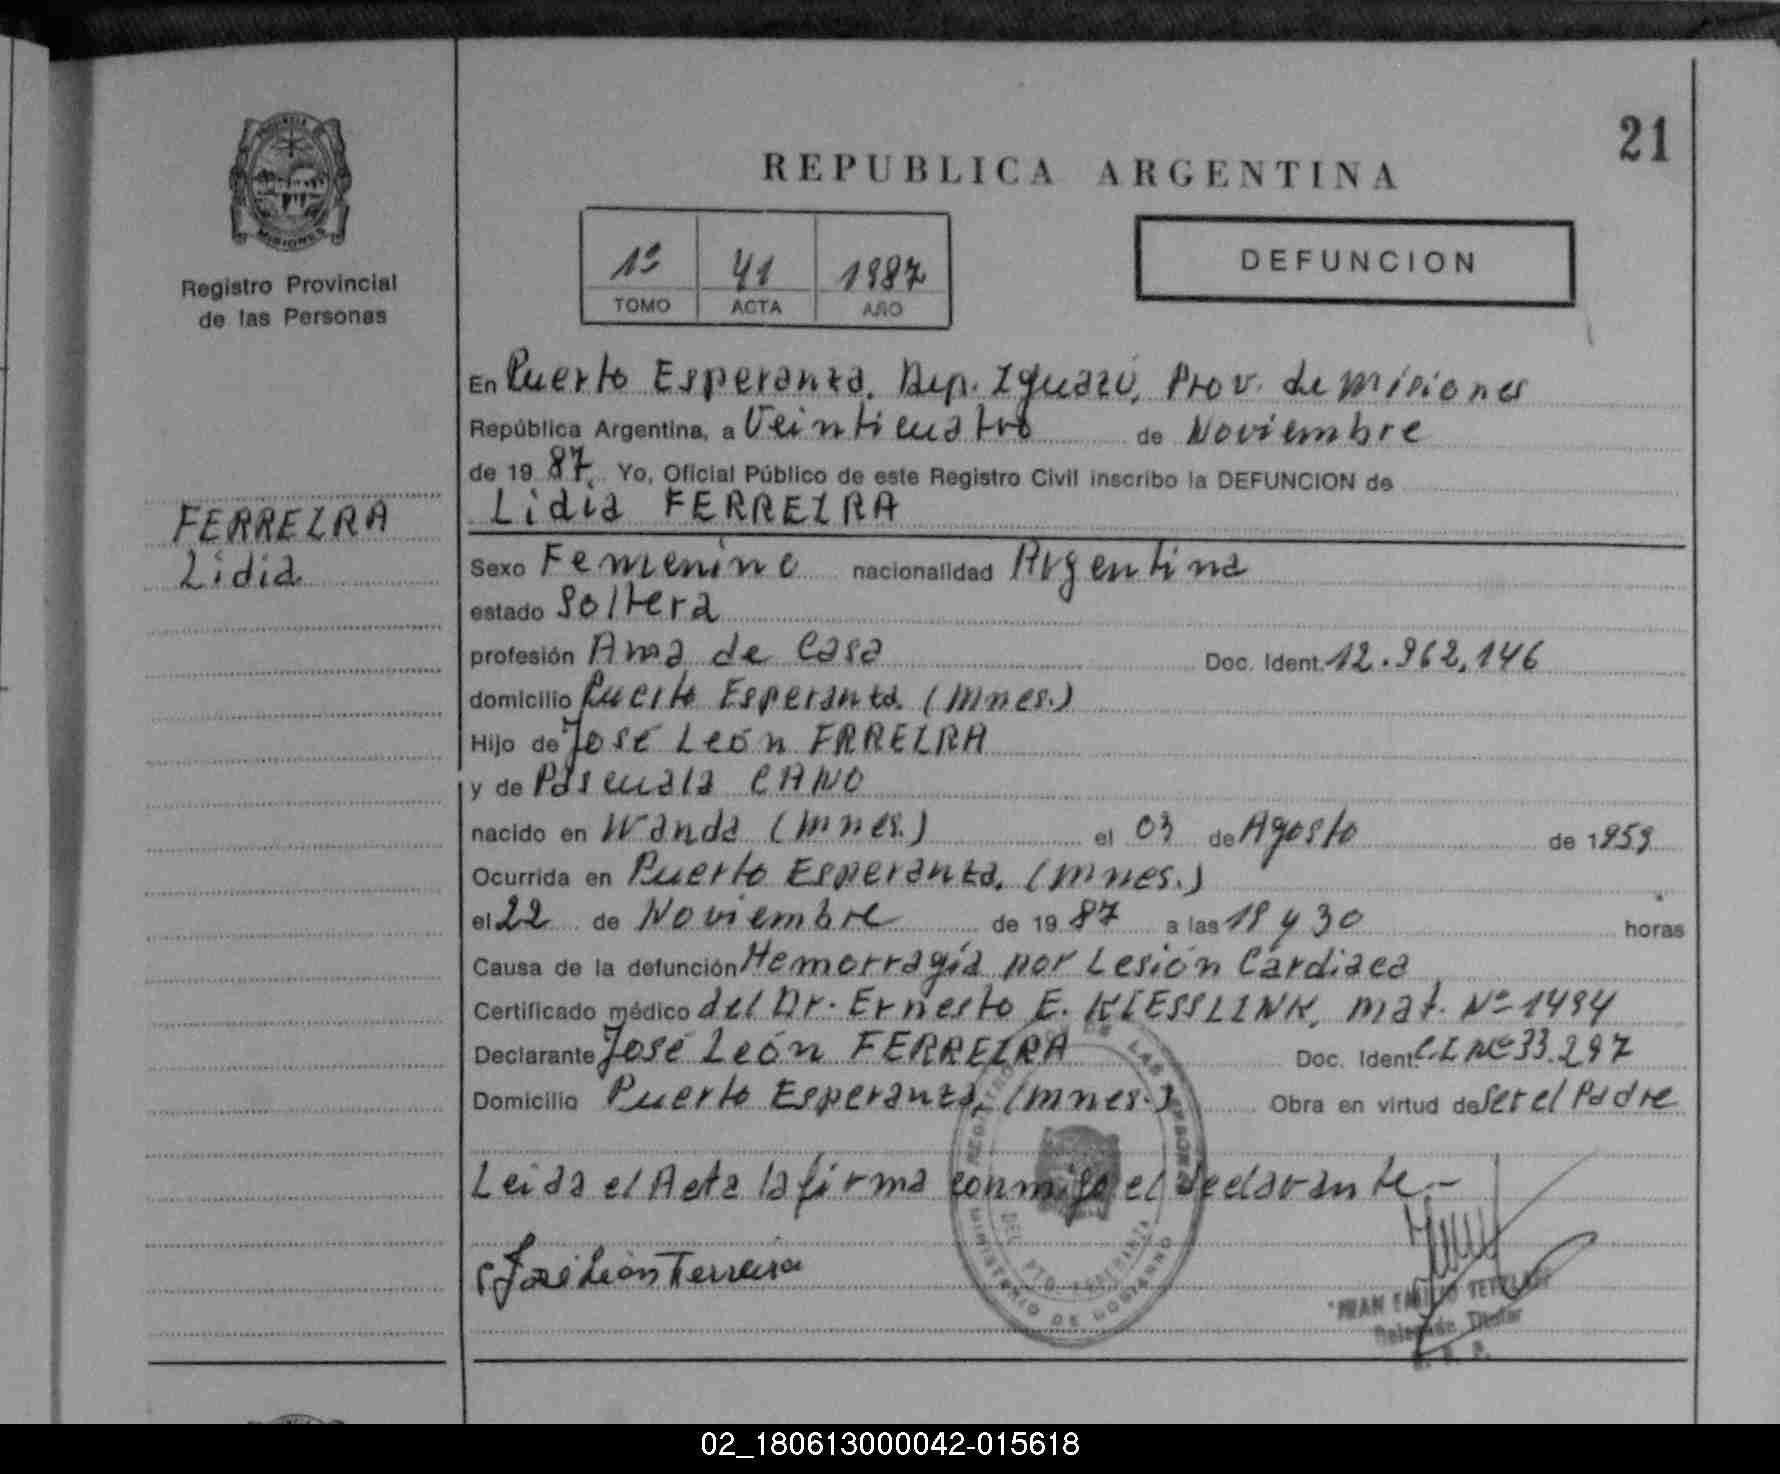 21
REPUBLICA ARGENTINA
PROVINCIA DE
MISIONES
Registro Provincial
de las Personas
1º 41 1987
TOMO ACTA AÑO
DEFUNCION
En Puerto Esperanza, Dep. Iguazú, Prov. de Misiones
República Argentina, a Veinticuatro de Noviembre
de 19 87, Yo, Oficial Público de este Registro Civil inscribo la DEFUNCION de
Lidia FERREIRA
FERREIRA
Lidia
Sexo Femenino nacionalidad Argentina
estado Soltera
profesión Ama de Casa Doc. Ident. 12.962,146
domicilio Puerto Esperanza. (Mnes.)
Hijo de José León FRREIRA
y de Pascuala CANO
nacido en Wanda (Mnes.) el 03 de Agosto de 1959
Ocurrida en Puerto Esperanza. (Mnes.)
el 22 de Noviembre de 19 87 a las 18 y 30 horas
Causa de la defunción Hemorragía por Lesión Cardiaca
Certificado médico del Dr. Ernesto E. KIESSLINK, Mat. Nº 1494
Declarante José León FERREIRA Doc. Ident. C.I Nº 33.297
Domicilio Puerto Esperanza, (Mnes.) Obra en virtud de Ser el Padre
Leida el Acta la firma conmigo el declarante.-
José León Ferreira
REGISTRO DE LAS PERSONAS
DEL PTO. ESPERANZA
MINISTERIO DE GOBIERNO
Delegado Titular
02_180613000042-015618